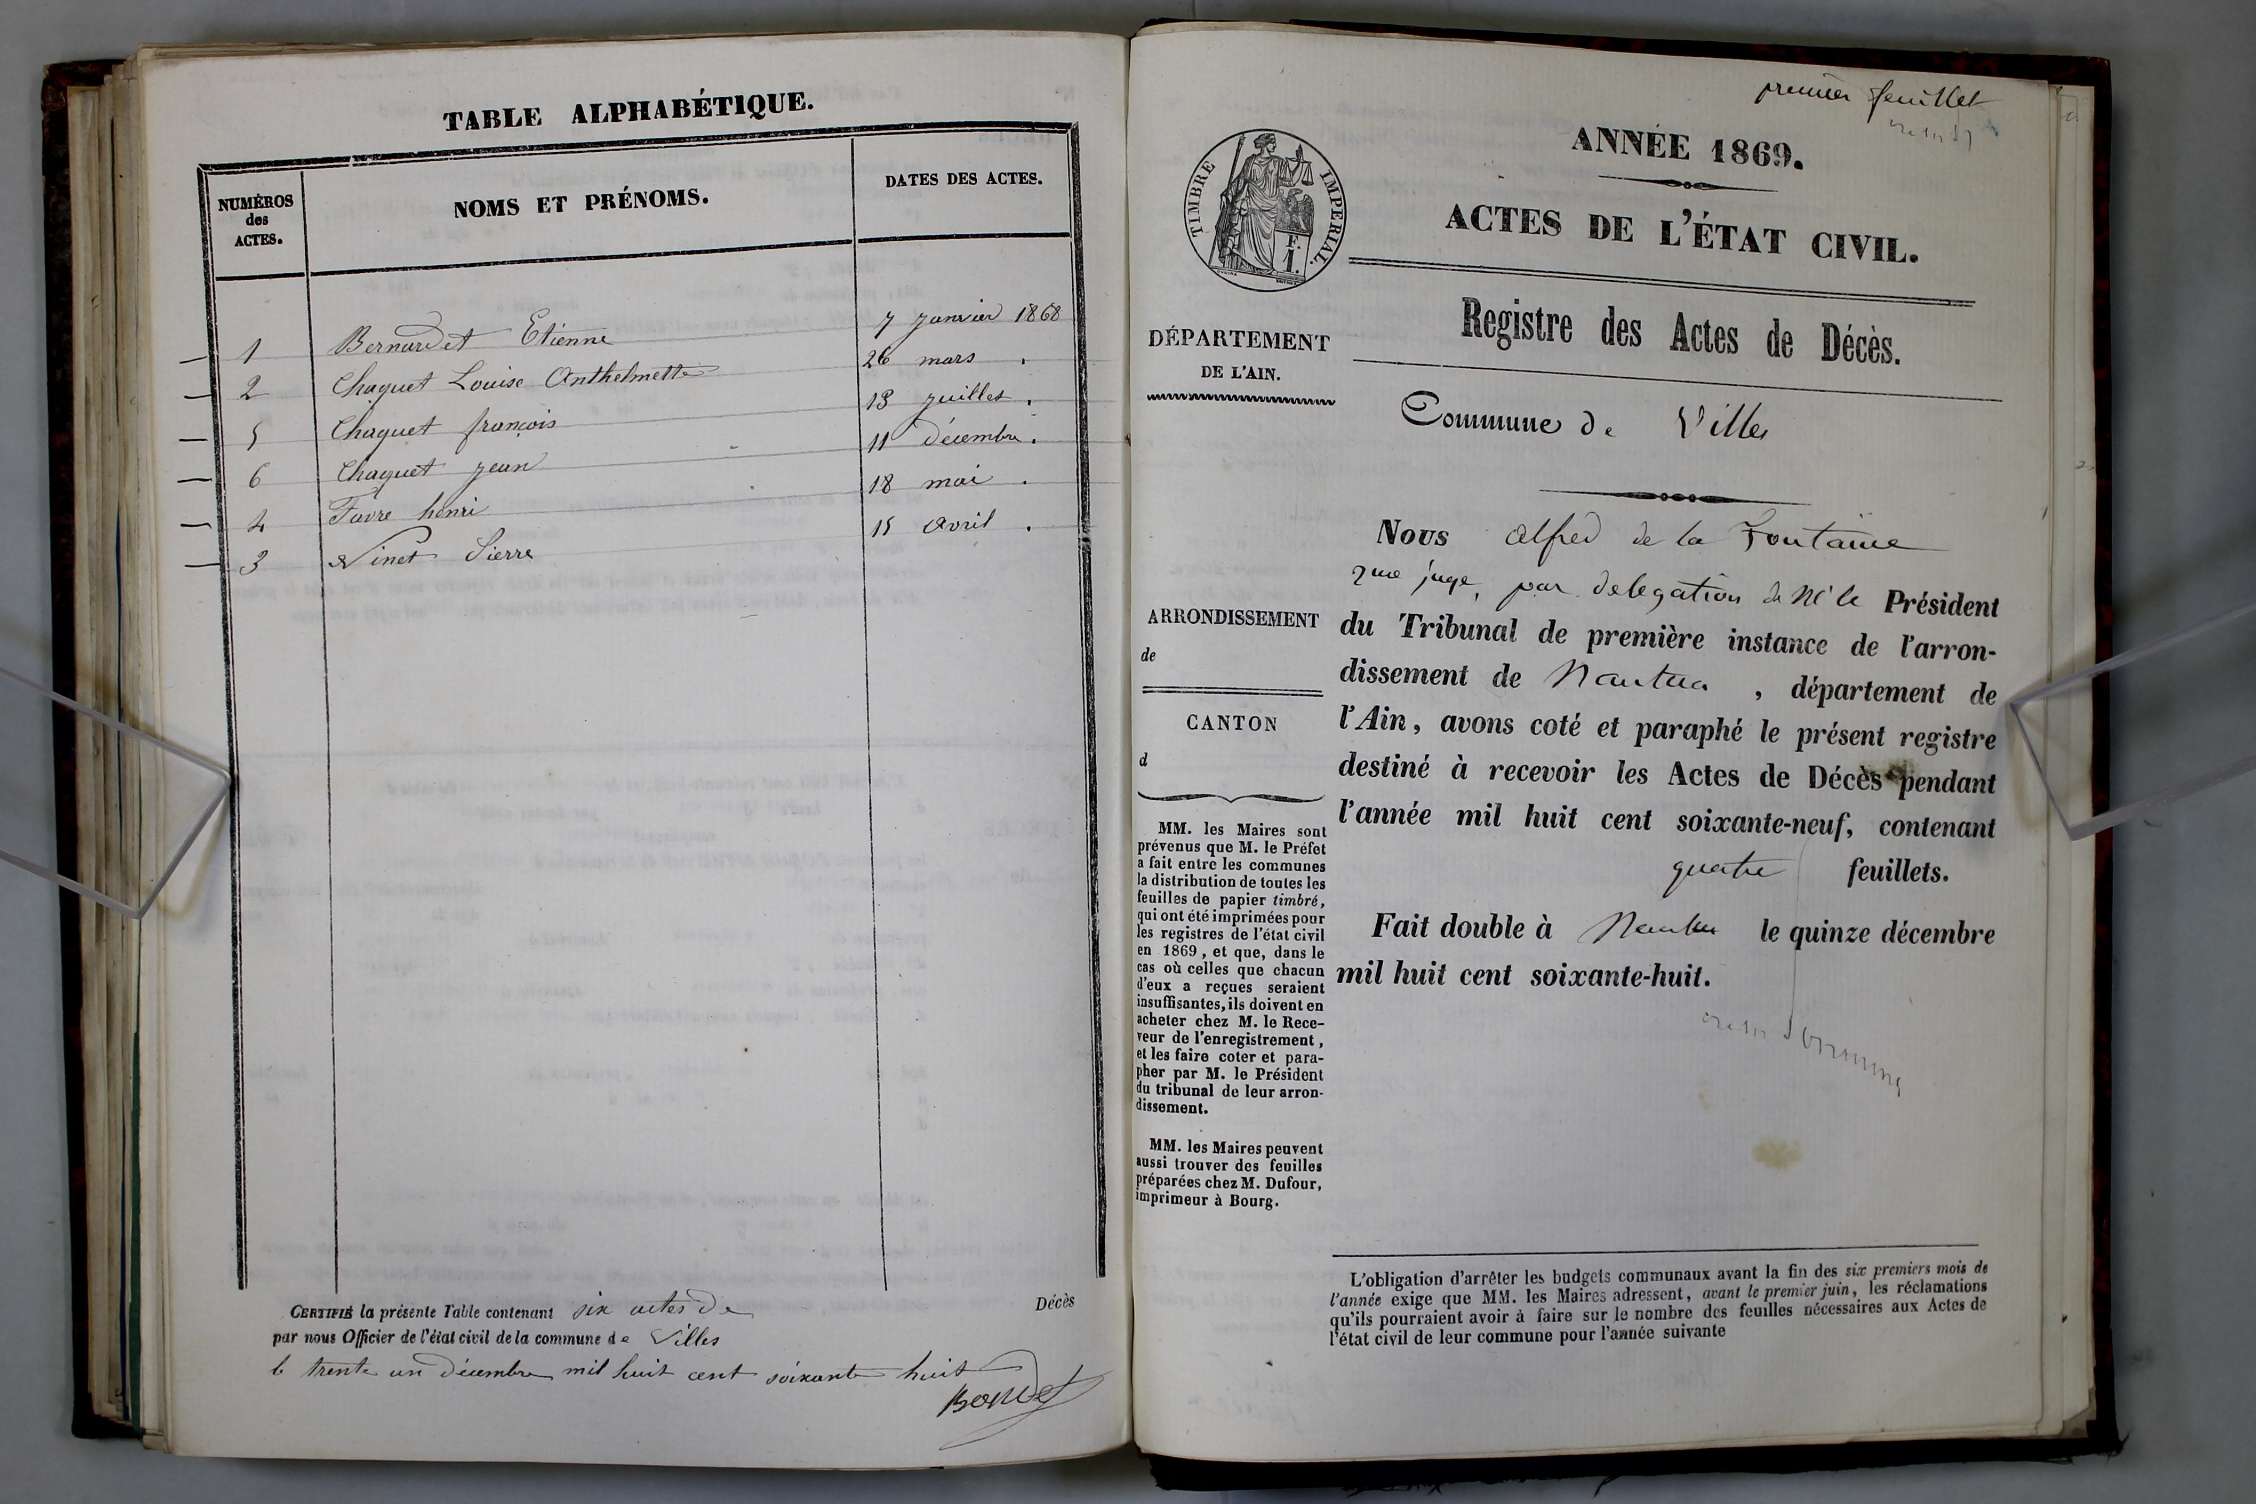 TABLE ALPHABÉTIQUE.
NUMÉROS
des
ACTES.
NOMS ET PRÉNOMS.
DATES DES ACTES.
1 Bernardet Etienne 7 janvier 1868
2 Chaquet Louise Anthelmette 26 mars .
5 Chaquet françois 13 juillet .
6 Chaquet jean 11 décembre .
4 Favre henri 18 mai .
3 Ninet Pierre 15 avril .
CERTIFIÉ la présente Table contenant six actes de Décès
par nous Officier de l'état civil de la commune de Villes
le trente un décembre mil huit cent soixante huit
premier feuillet
ANNÉE 1869.
ACTES DE L'ÉTAT CIVIL.
TIMBRE IMPERIAL.
F.
1.
Registre des Actes de Décès.
DÉPARTEMENT
DE L'AIN.
Commune de Villes
ARRONDISSEMENT
de
CANTON
d
MM. les Maires sont
prévenus que M. le Préfet
a fait entre les communes
la distribution de toutes les
feuilles de papier timbré,
qui ont été imprimées pour
les registres de l'état civil
en 1869, et que, dans le
cas où celles que chacun
d'eux a reçues seraient
insuffisantes, ils doivent en
acheter chez M. le Rece-
veur de l'enregistrement,
et les faire coter et para-
pher par M. le Président
du tribunal de leur arron-
dissement.
MM. les Maires peuvent
aussi trouver des feuilles
préparées chez M. Dufour,
imprimeur à Bourg.
Nous Alfred de la Fontaine
juge, par delegation de Mr le Président
du Tribunal de première instance de l'arron-
dissement de Nantua , département de
l'Ain, avons coté et paraphé le présent registre
destiné à recevoir les Actes de Décès pendant
l'année mil huit cent soixante-neuf, contenant
quatre feuillets.
Fait double à Nantua le quinze décembre
mil huit cent soixante-huit.
L'obligation d'arrêter les budgets communaux avant la fin des six premiers mois de
l'année exige que MM. les Maires adressent, avant le premier juin, les réclamations
qu'ils pourraient avoir à faire sur le nombre des feuilles nécessaires aux Actes de
l'état civil de leur commune pour l'année suivante